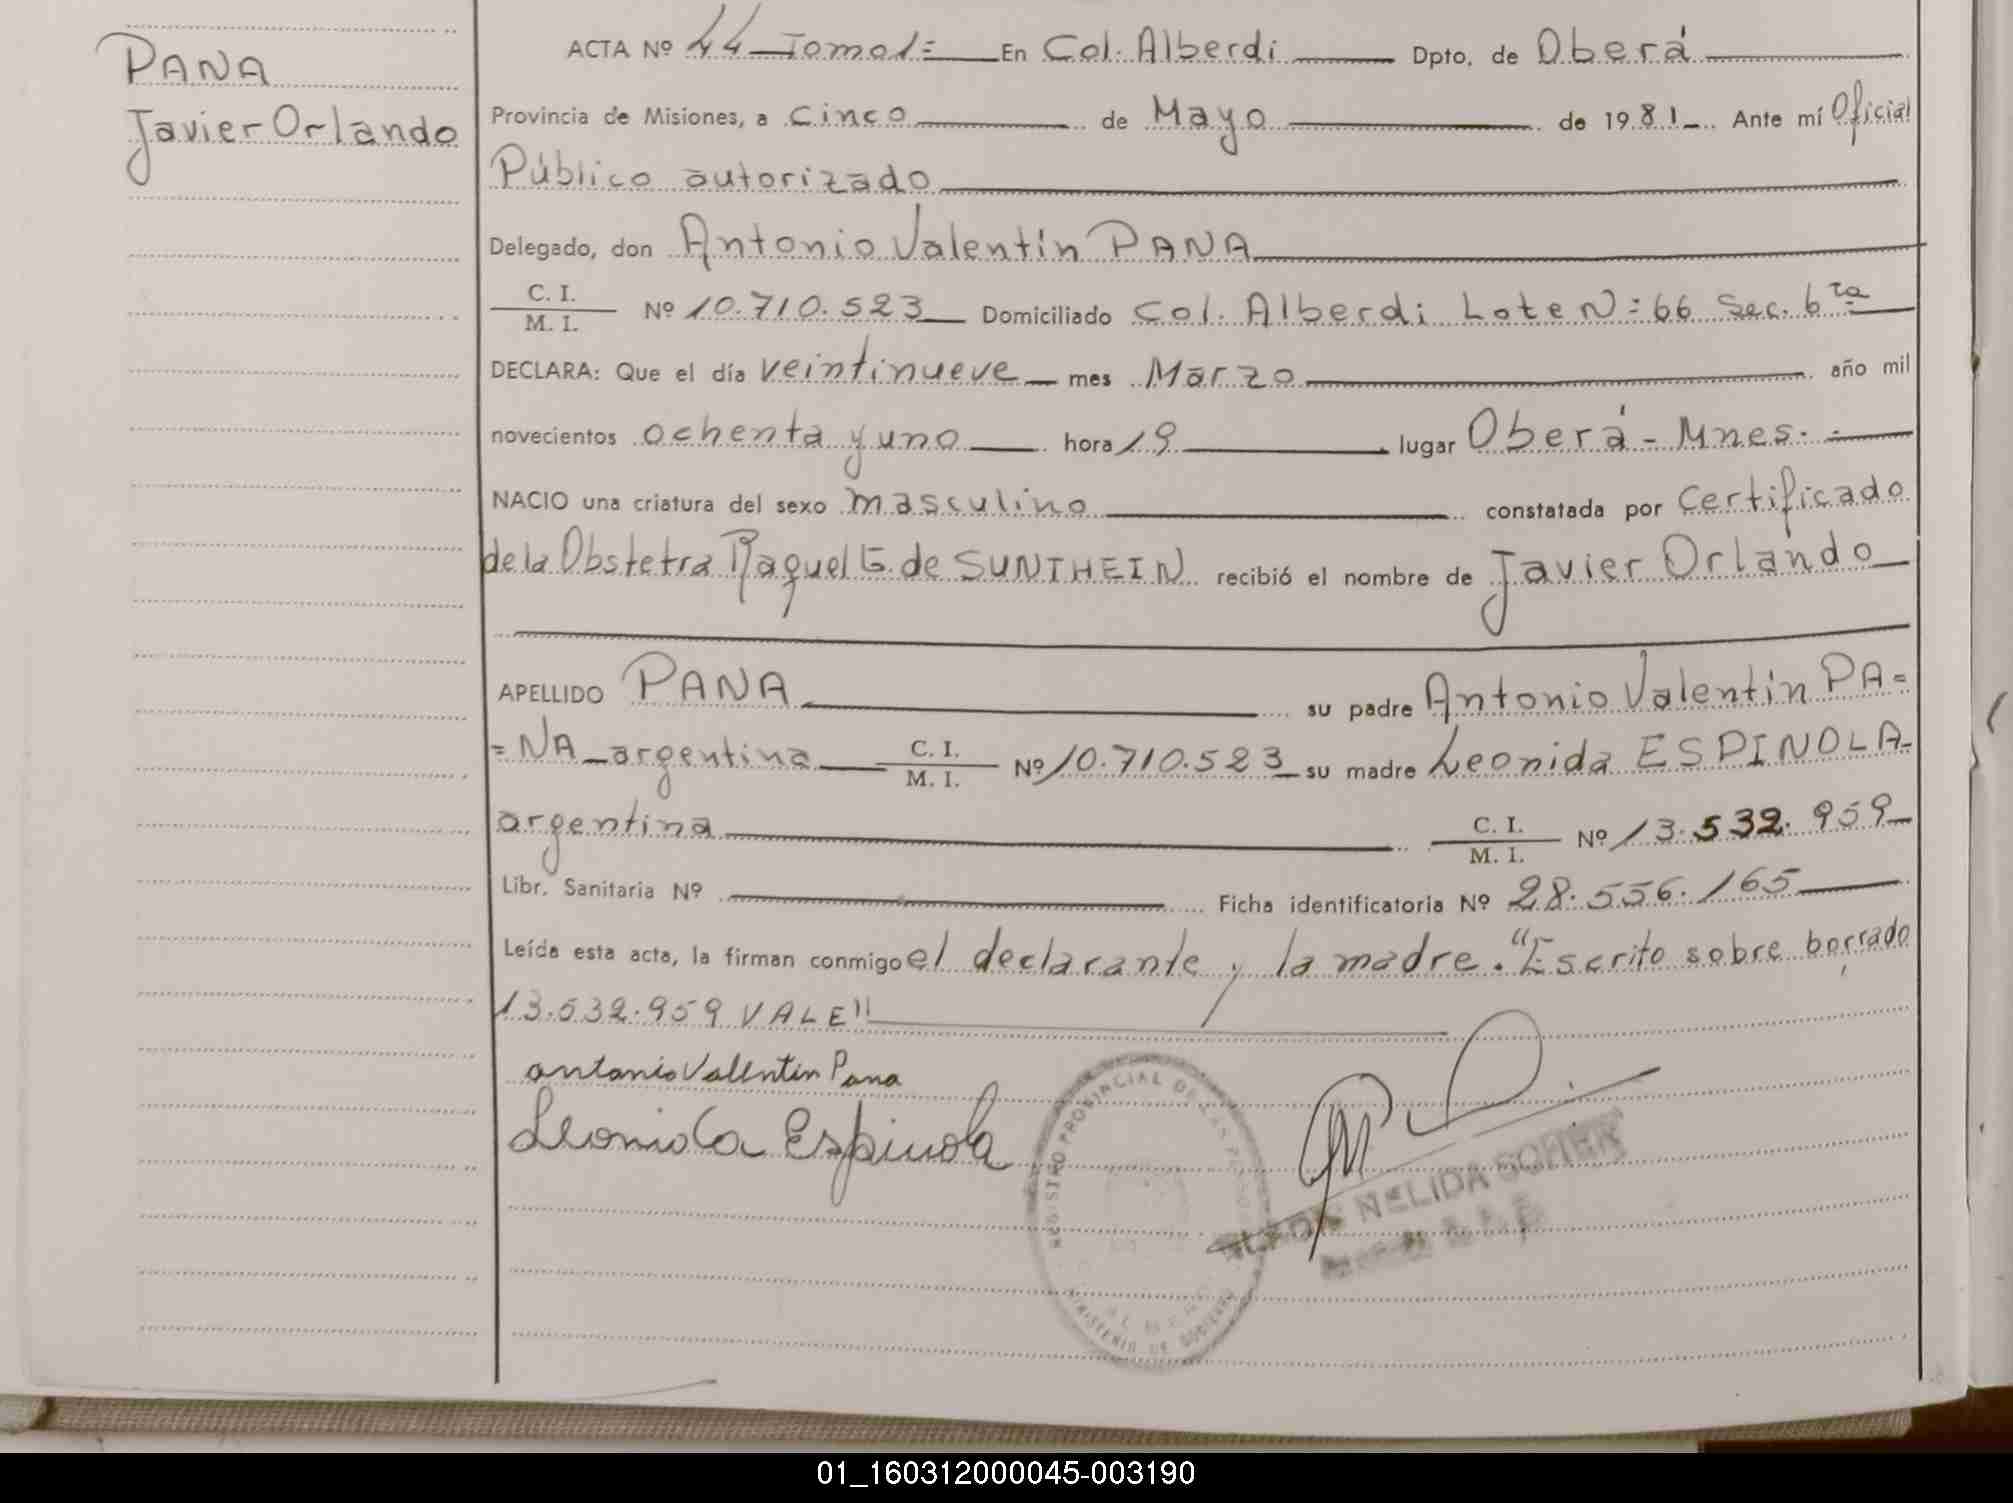 PANA
Javier Orlando
ACTA Nº 44 Tomo 1= En Col. Alberdi Dpto. de Oberá
Provincia de Misiones, a cinco de Mayo de 1981 Ante mí Oficial
Público autorizado
Delegado, don Antonio Valentín PANA
C. I.
M. I. Nº 10.710.523 Domiciliado Col. Alberdi Lote N: 66 Sec. 6ta
DECLARA: Que el día veintinueve mes Marzo año mil
novecientos ochenta y uno hora 19 lugar Oberá - Mnes.
NACIO una criatura del sexo masculino constatada por Certificado
de la Obstetra Raquel E. de SUNTHEIN recibió el nombre de Javier Orlando
APELLIDO PANA su padre Antonio Valentín PA=
=NA argentina C. I. M. I. Nº 10.710.523 su madre Leonida ESPINOLA
argentina C. I. M. I. Nº 13.532.959
Libr. Sanitaria Nº Ficha identificatoria Nº 28.556.165
Leída esta acta, la firman conmigo el declarante y la madre. "Escrito sobre borrado
13.532.959 VALE"
antonio Valentin Pana
Leonida Espinola
REGISTRO PROVINCIAL DE LAS PERSONAS
MINISTERIO DE GOBIERNO
NELIDA
01_160312000045-003190